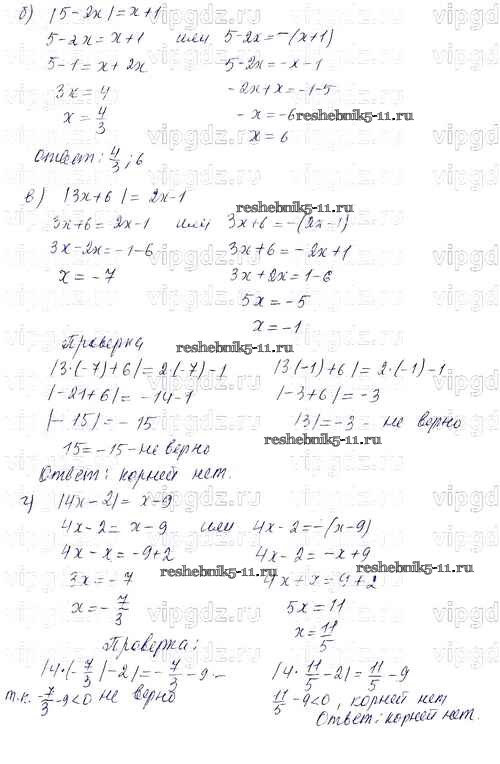 б) |5-2x|=x+1
5-2x=x+1 или 5-2x=-(x+1)
5-1=x+2x 5-2x=-x-1
3x=4 -2x+x=-1-5
x=4/3 -x=-6
reshebnik5-11.ru
x=6
Ответ: 4/3; 6
в) |3x+6|=2x-1
reshebnik5-11.ru
3x+6=2x-1 или 3x+6=-(2x-1)
3x-2x=-1-6 3x+6=-2x+1
x=-7 3x+2x=1-6
5x=-5
x=-1
Проверка
reshebnik5-11.ru
|3·(-7)+6|=2·(-7)-1 |3(-1)+6|=2·(-1)-1
|-21+6|=-14-1 |-3+6|=-3
|-15|=-15 |3|=-3 - не верно
reshebnik5-11.ru
15=-15-не верно
Ответ: корней нет.
г) |4x-2|=x-9
4x-2=x-9 или 4x-2=-(x-9)
4x-x=-9+2 4x-2=-x+9
reshebnik5-11.ru reshebnik5-11.ru
3x=-7 4x+x=9+2
x=-7/3 5x=11
x=11/5
Проверка:
|4·(-7/3)-2|=-7/3-9- |4·11/5-2|=11/5-9
т.к. -7/3-9<0 не верно 11/5-9<0, корней нет
Ответ: корней нет.
vipgdz.ru